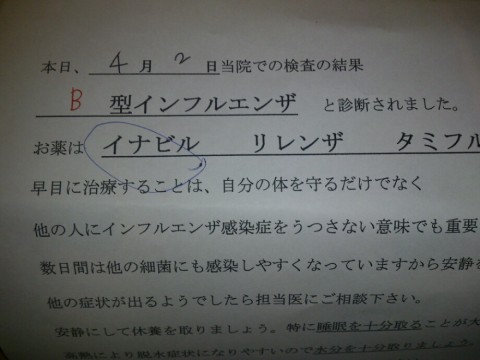 本日、 4 月 2 日当院での検査の結果
B 型インフルエンザ と診断されました。
お薬は イナビル リレンザ タミフル
早目に治療することは、自分の体を守るだけでなく
他の人にインフルエンザ感染症をうつさない意味でも重要
数日間は他の細菌にも感染しやすくなっていますから安静を
他の症状が出るようでしたら担当医にご相談下さい。
安静にして休養を取りましょう。特に睡眠を十分取ることが大
高熱により脱水症状になりやすいので水分を十分取りましょう